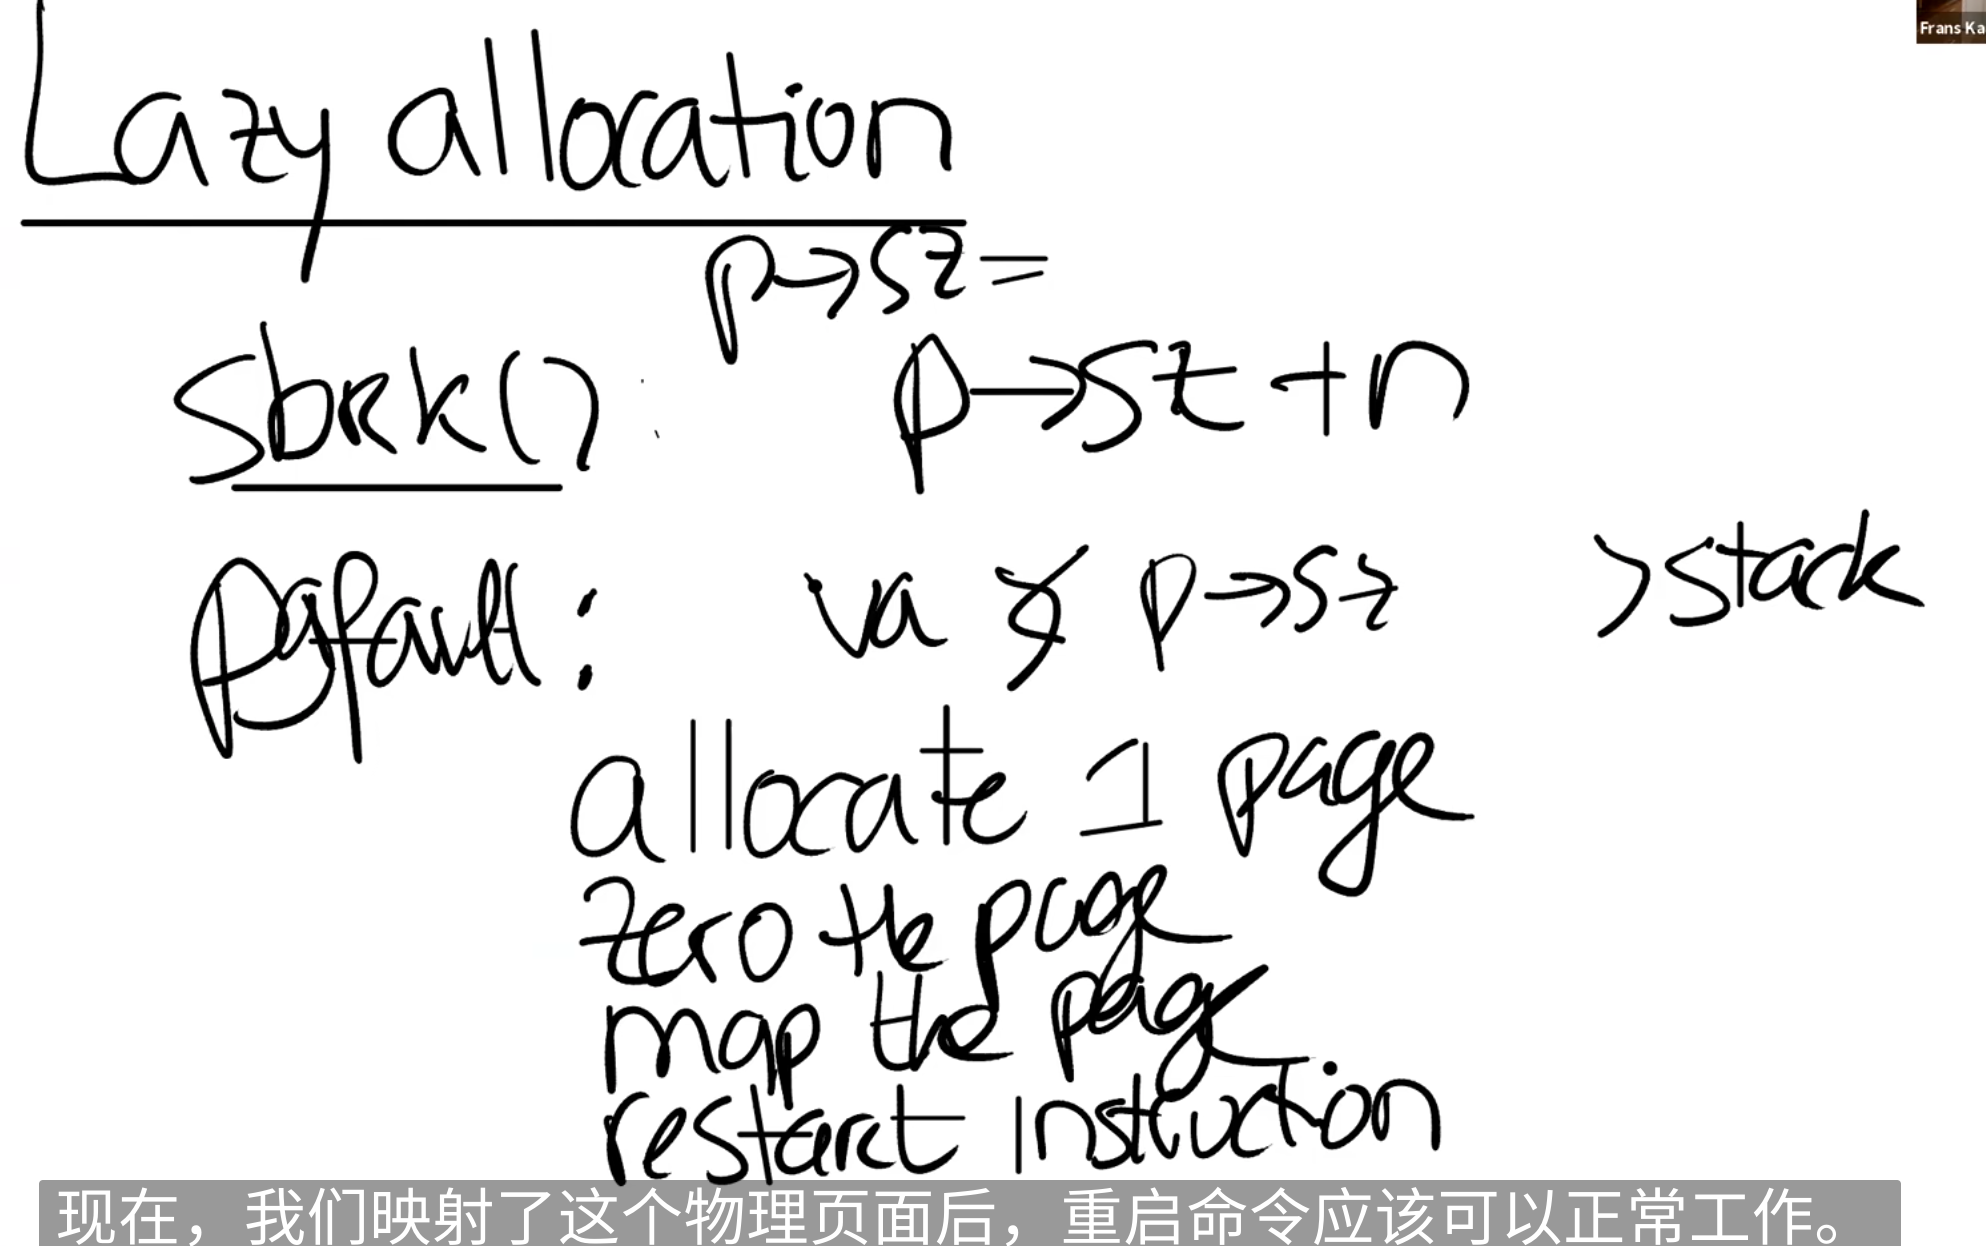 Frans Ka
Lazy allocation
p→sz =
sbrk() : p→sz + n
pgfault : va < p→sz >stack
allocate 1 page
zero the page
map the page
restart instruction
现在，我们映射了这个物理页面后，重启命令应该可以正常工作。